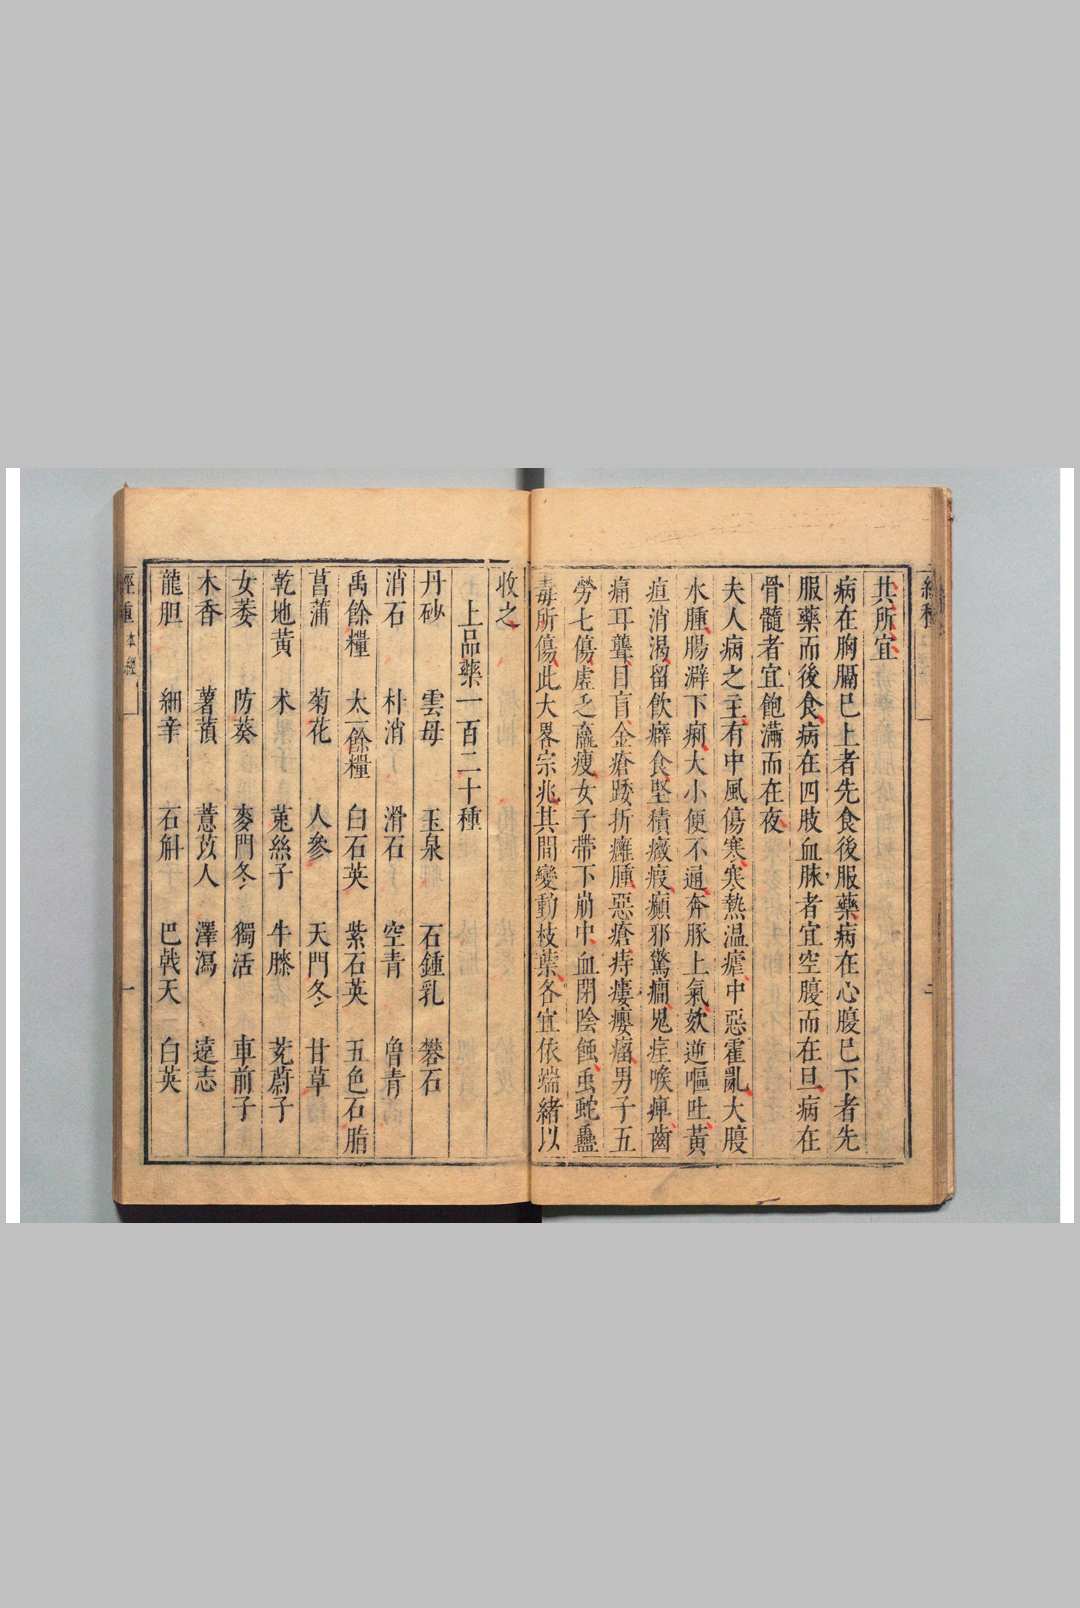 其所宜
病在胸膈已上者先食後服藥病在心腹已下者先
服藥而後食病在四肢血脉者宜空腹而在旦病在
骨髓者宜飽滿而在夜
夫人病之主有中風傷寒寒熱温瘧中惡霍亂大腹
水腫腸澼下痢大小便不通奔豚上氣欬逆嘔吐黃
疸消渴留飲癖食堅積癥瘕癲邪驚癎鬼疰喉痺齒
痛耳聾目盲金瘡踒折癰腫惡瘡痔瘻癭瘤男子五
勞七傷虛乏羸瘦女子帶下崩中血閉陰蝕虫蛇蠱
毒所傷此大畧宗兆其間變動枝葉各宜依端緒以
二
收之
上品藥一百二十種
丹砂 雲母 玉泉 石鍾乳 礬石
消石 朴消 滑石 空青 曾青
禹餘糧 太一餘糧 白石英 紫石英 五色石脂
菖蒲 菊花 人參 天門冬 甘草
乾地黃 朮 菟絲子 牛膝 茺蔚子
女萎 防葵 麥門冬 獨活 車前子
木香 薯蕷 薏苡人 澤瀉 遠志
龍胆 細辛 石斛 巴戟天 白英
本經